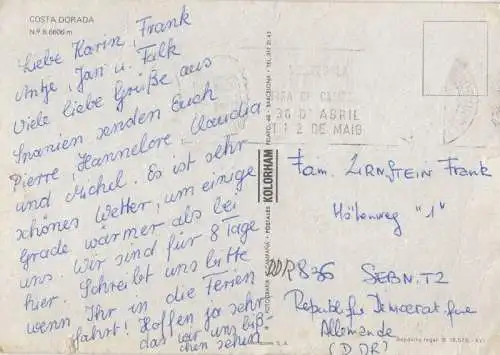 COSTA DORADA
N.º B 6606 m
Liebe Karin, Frank
Antje, Jan u. Falk
Viele liebe Grüße aus
Spanien senden Euch
Pierre Hannelore Claudia
und Michel. Es ist sehr
schönes Wetter, um einige
Grade wärmer als bei
uns. Wir sind für 8 Tage
hier. Schreibt uns bitte
wenn Ihr in die Ferien
fährt! Hoffen ja sehr
das wir uns biß
chen sehen
POSTALES KOLORHAM
D'ABRIL
2 DE MAIG
Fam. ZIRNSTEIN Frank
Höhenweg "1"
DDR 836 SEBNITZ
Republique Democratique
Allemande
(DDR)